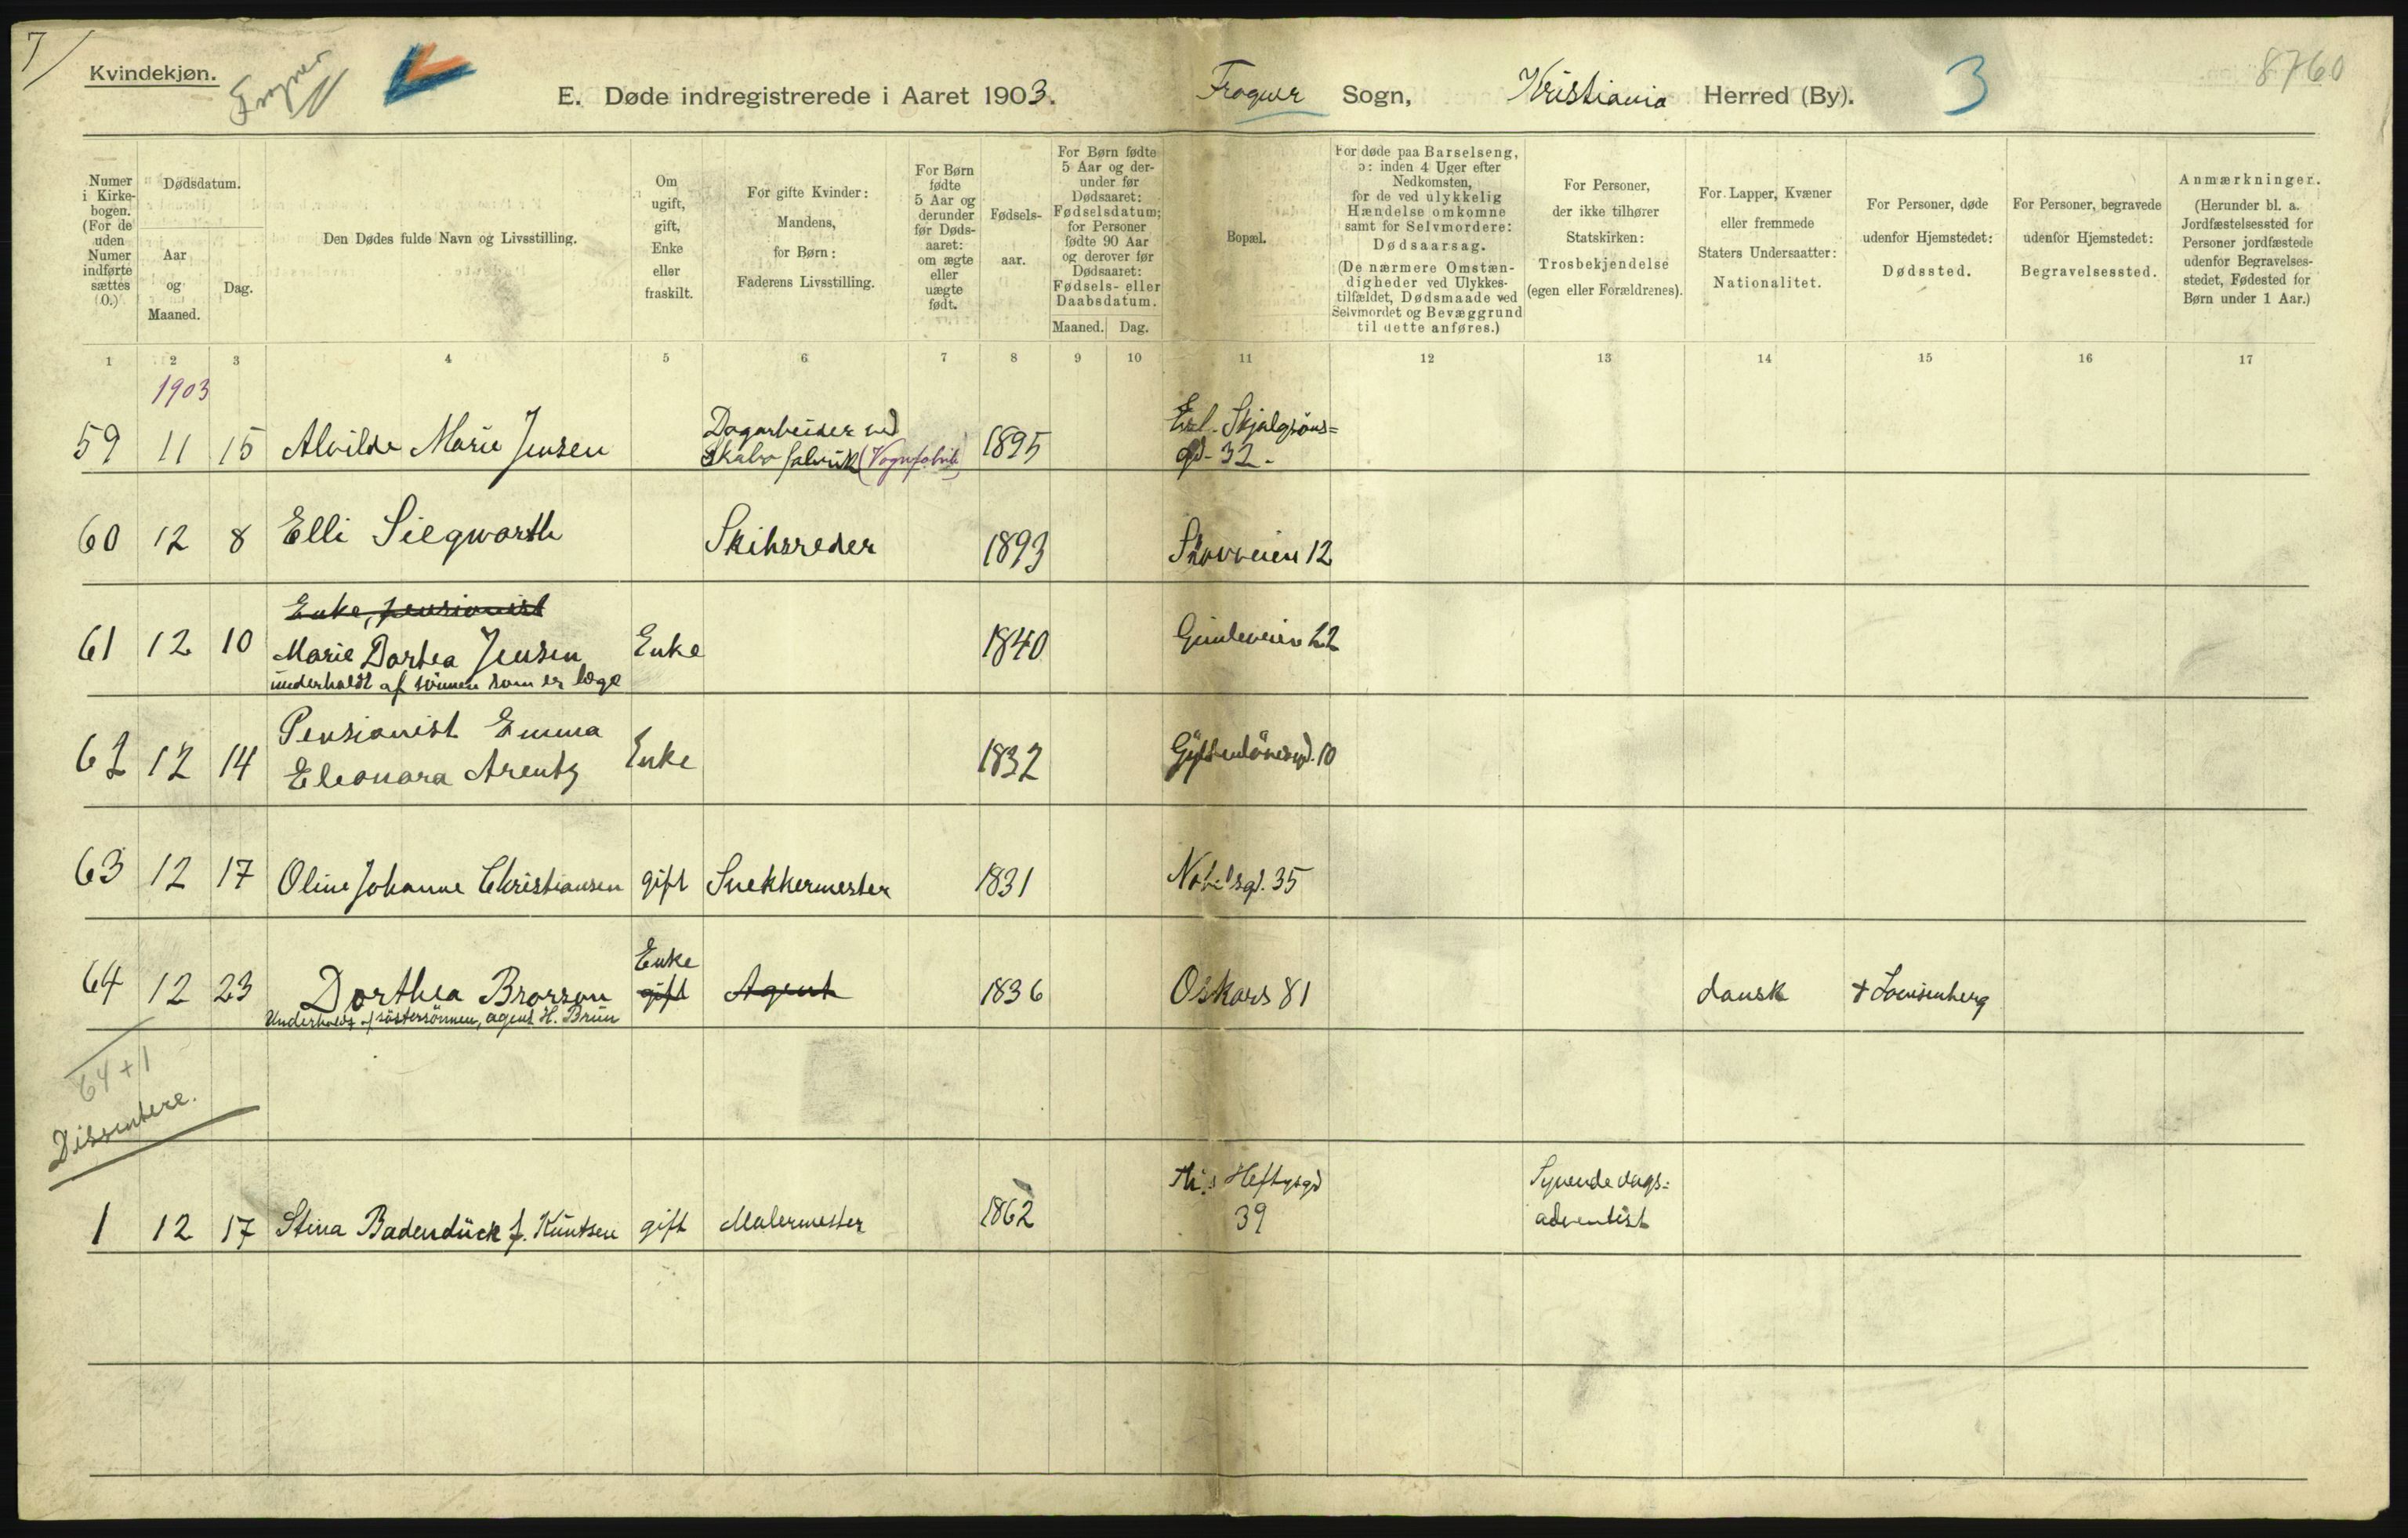 7
Kvindekjøn.
Frogner
E. Døde indregistrerede i Aaret 1903.
Frogner Sogn, Kristiania Herred (By).
3
8760
Numer i Kirke-bogen. (For de uden Numer indførte sættes 0.)
Dødsdatum.
Aar og Maaned.
Dag.
Den Dødes fulde Navn og Livsstilling.
Om ugift, gift, Enke eller fraskilt.
For gifte Kvinder: Mandens, for Børn: Faderens Livsstilling.
For Børn fødte 5 Aar og derunder før Døds-aaret: om ægte eller uægte født.
Fødsels-aar.
For Børn fødte 5 Aar og der-under før Dødsaaret: Fødselsdatum; for Personer fødte 90 Aar og derover før Dødsaaret: Fødsels- eller Daabsdatum.
Maaned. Dag.
Bopæl.
For døde paa Barselseng, ɔ: inden 4 Uger efter Nedkomsten, for de ved ulykkelig Hændelse omkomne samt for Selvmordere: Dødsaarsag. (De nærmere Omstæn-digheder ved Ulykkes-tilfældet, Dødsmaade ved Selvmordet og Bevæggrund til dette anføres.)
For Personer, der ikke tilhører Statskirken: Trosbekjendelse (egen eller Forældrenes).
For Lapper, Kvæner eller fremmede Staters Undersaatter: Nationalitet.
For Personer, døde udenfor Hjemstedet: Dødssted.
For Personer, begravede udenfor Hjemstedet: Begravelsessted.
Anmærkninger. (Herunder bl. a. Jordfæstelsessted for Personer jordfæstede udenfor Begravelses-stedet, Fødested for Børn under 1 Aar.)
1 2 3 4 5 6 7 8 9 10 11 12 13 14 15 16 17
1903
59 11 15 Alvilde Marie Jensen Dagarbeider ved Skabo fabrik (Vognfabrik) 1895 Erl. Skjalgsöns= gd. 32.
60 12 8 Elli Siegwarth Skibsreder 1893 Skovveien 12
Enke, pensionist
61 12 10 Marie Dorthea Jensen Enke 1840 Gimleveien 22
underholdt af sönnen som er læge
62 12 14 Pensionist Emma Eleonora Arentz Enke 1832 Gyldenlövesgd. 10
63 12 17 Oline Johanne Christiansen gift Snekkermester 1831 Nobelsgd. 35
Enke
64 12 23 Dorthea Brorson gift Agent 1836 Oskars 81 dansk + Lovisenberg
Underholdt af söstersönnen, agent H. Brun
64+1
Dissentere.
1 12 17 Stina Badendück f. Knutsen gift Malermester 1862 Th.s Heftysgd 39 Syvendedags= adventist